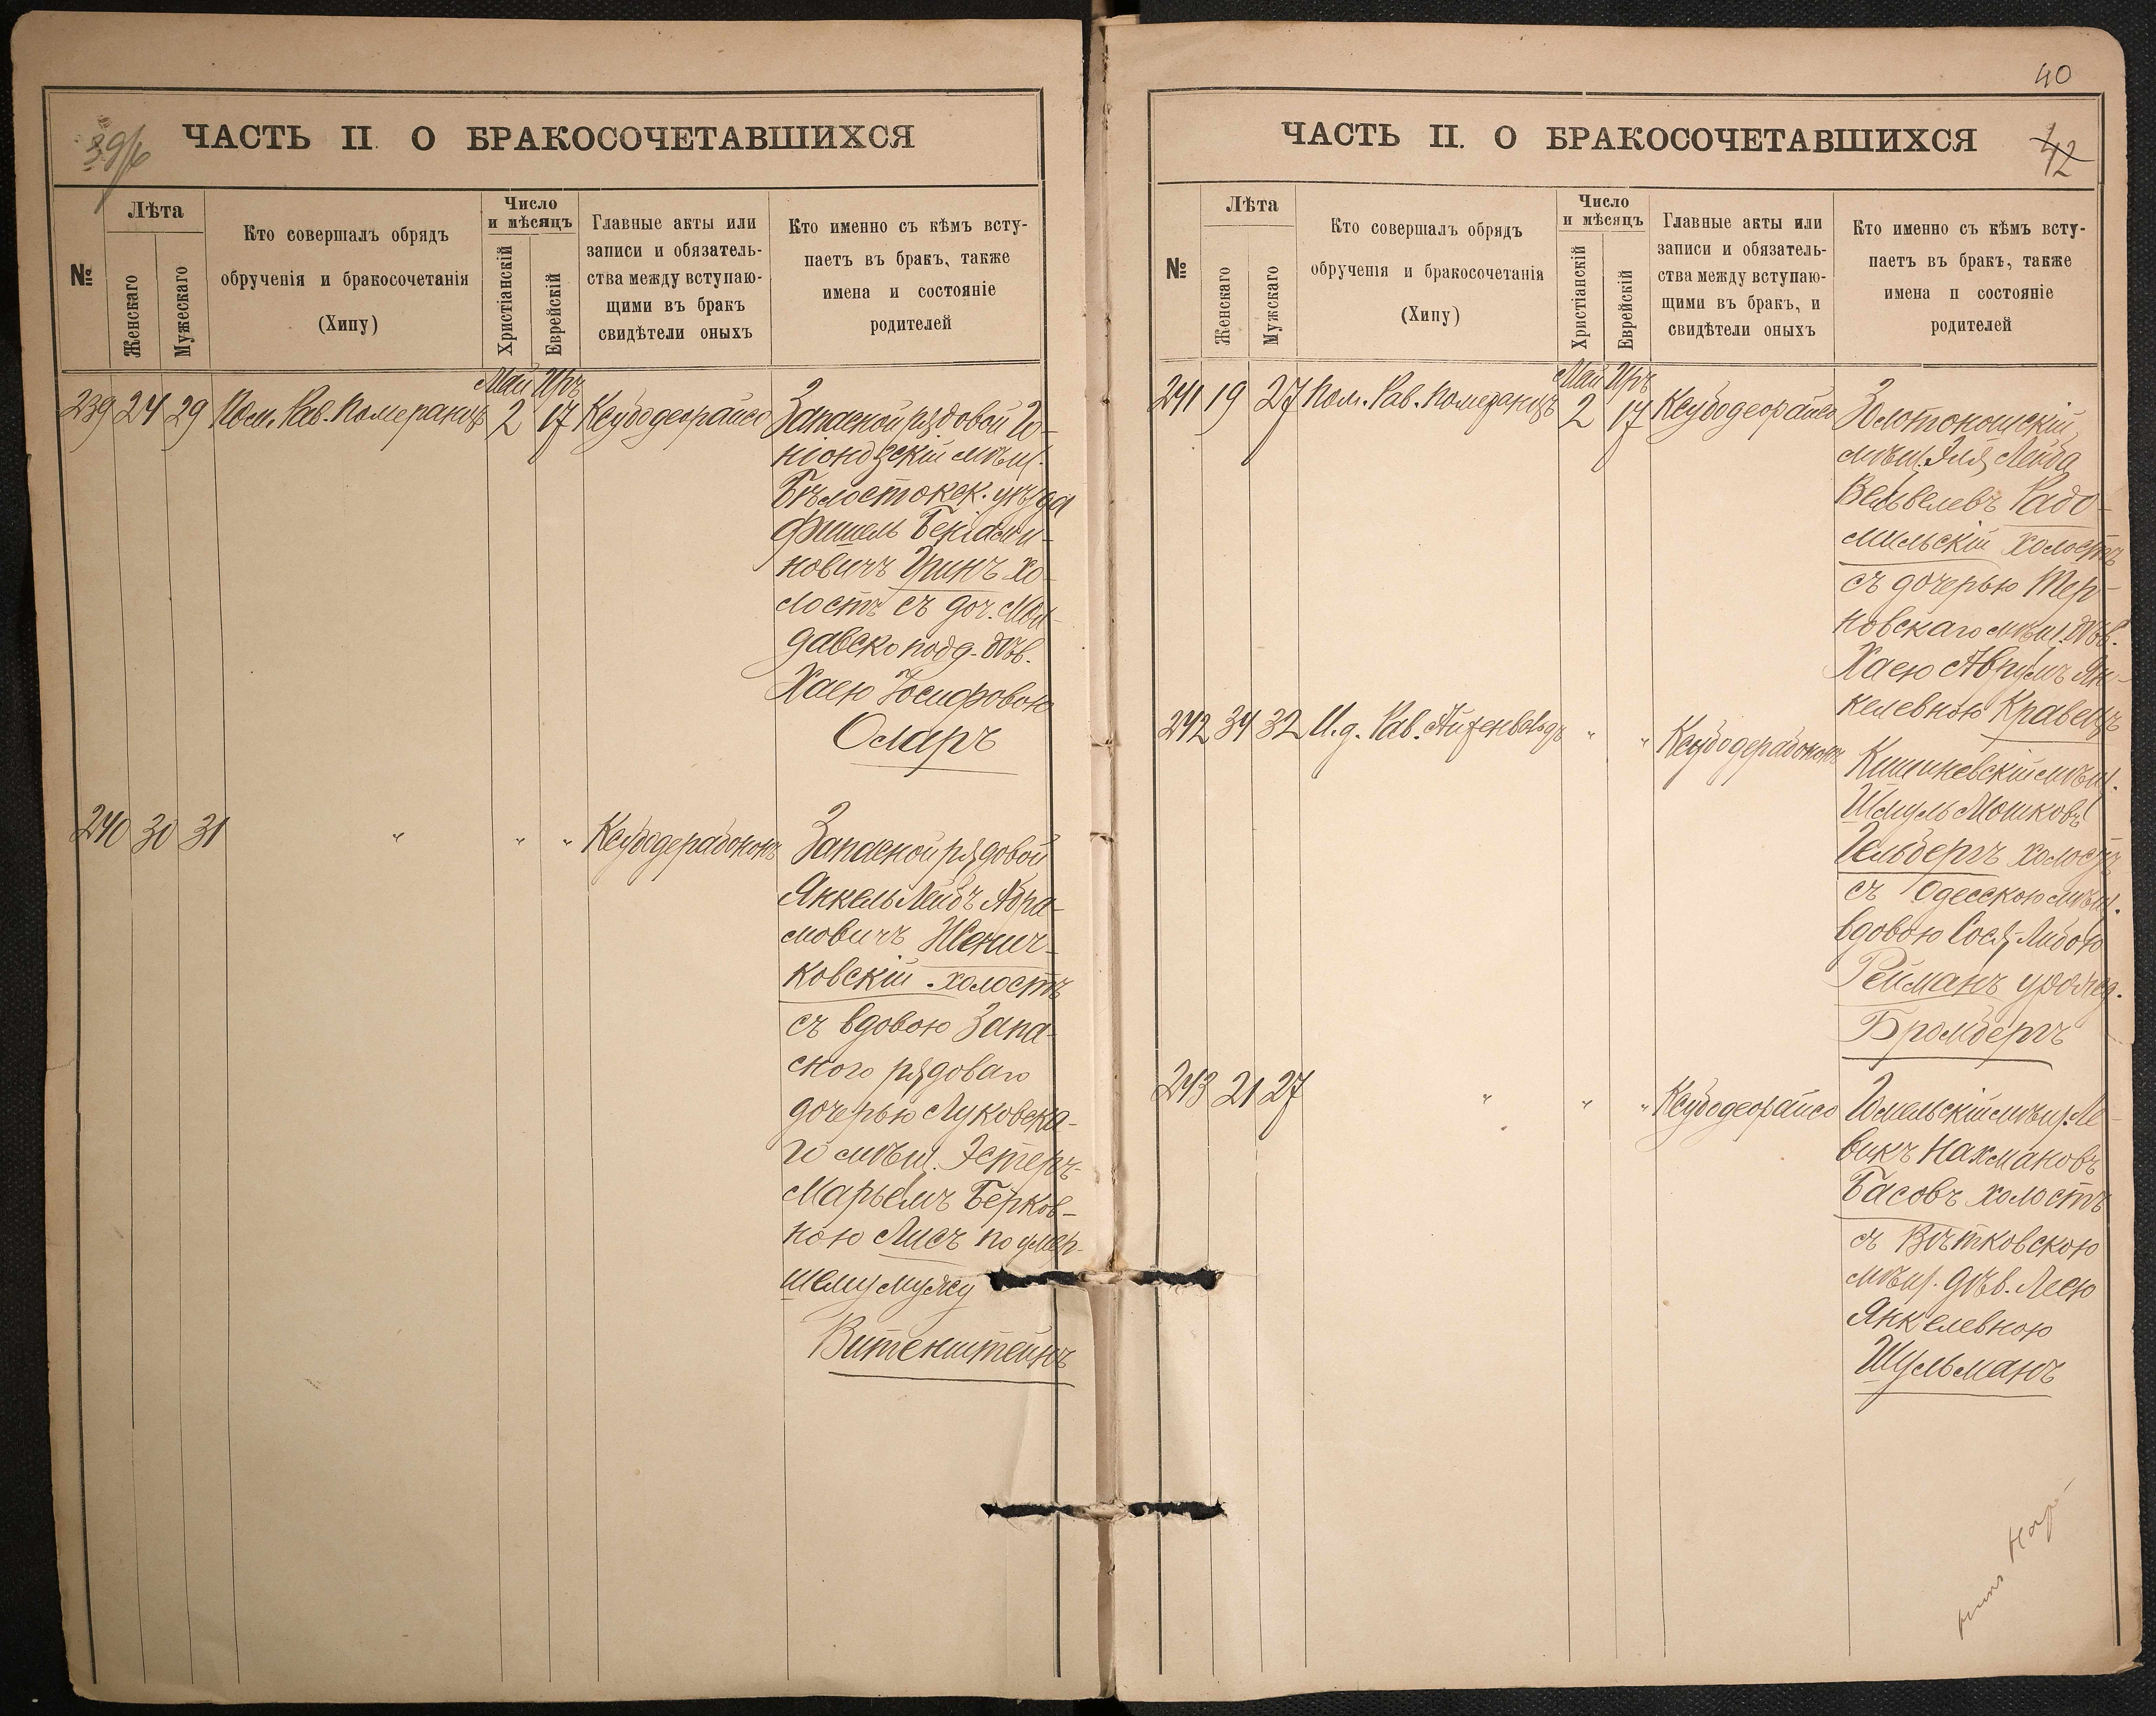 ЧАСТЬ II. О БРАКОСОЧЕТАВШИХСЯ
№
Лѣта
Женскаго
Мужескаго
Кто совершалъ обрядъ
обрученія и бракосочетанія
(Хипу)
Число
и мѣсяцъ
Христіанскій
Еврейскій
Главные акты или
записи и обязатель-
ства между вступаю-
щими въ бракъ
свидѣтели оныхъ
Кто именно съ кѣмъ всту-
паетъ въ бракъ, также
имена и состояніе
родителей
Май Иръ
239 24 29 Пом. Рав. Померанцъ 2 17 Ксубодеорайсо
Запасной рядовой Го-
ніондзскій мѣщ.
Бѣлостокск. уѣзда
Фишель Беніами-
новичъ Гринъ хо-
лостъ съ доч. Мол-
давско подд. дѣв.
Хаею Іосифовою
Оларъ
240 30 31 " " " Ксубодерабононъ
Запасной рядовой
Янкель Лейбъ Абра-
мовичъ
ковскій холостъ
съ вдовою Запа-
сного рядоваго
дочерью Луковска-
го мѣщ. Эстеръ-
Марьемъ Берков-
ною Лисъ по умер-
шему мужу
Витенштейнъ
40
ЧАСТЬ II. О БРАКОСОЧЕТАВШИХСЯ
42
№
Лѣта
Женскаго
Мужскаго
Кто совершалъ обрядъ
обрученія и бракосочетанія
(Хипу)
Число
и мѣсяцъ
Христіанскій
Еврейскій
Главные акты или
записи и обязатель-
ства между вступаю-
щими въ бракъ, и
свидѣтели оныхъ
Кто именно съ кѣмъ всту-
паетъ въ бракъ, также
имена и состояніе
родителей
Май Иръ
241 19 27 Пом. Рав. Померанцъ 2 17 Ксубодеорайсо
Золотоношскій
мѣщ. Эля Лейба
Вельвелевъ Радо-
мильскій холостъ
съ дочерью Тер-
новскаго мѣщ. дѣв.
Хаею Аврумъ Ян-
келевною Кравецъ
242 34 32 И. д. Рав. Айзенвальдъ " " Ксубодерабононъ
Кишиневскій мѣщ.
Шмуль Мошковъ
Гельбергъ холостъ
съ Одесскою мѣщ.
вдовою Сося-Либою
Рейманъ урожд.
Бромбергъ
243 21 27 " " " Ксубодеорайсо
Гомельскій мѣщ. Ле-
викъ Нахмановъ
Басовъ холостъ
съ Вѣтковскою
мѣщ. дѣв. Леею
Янкелевною
Шульманъ